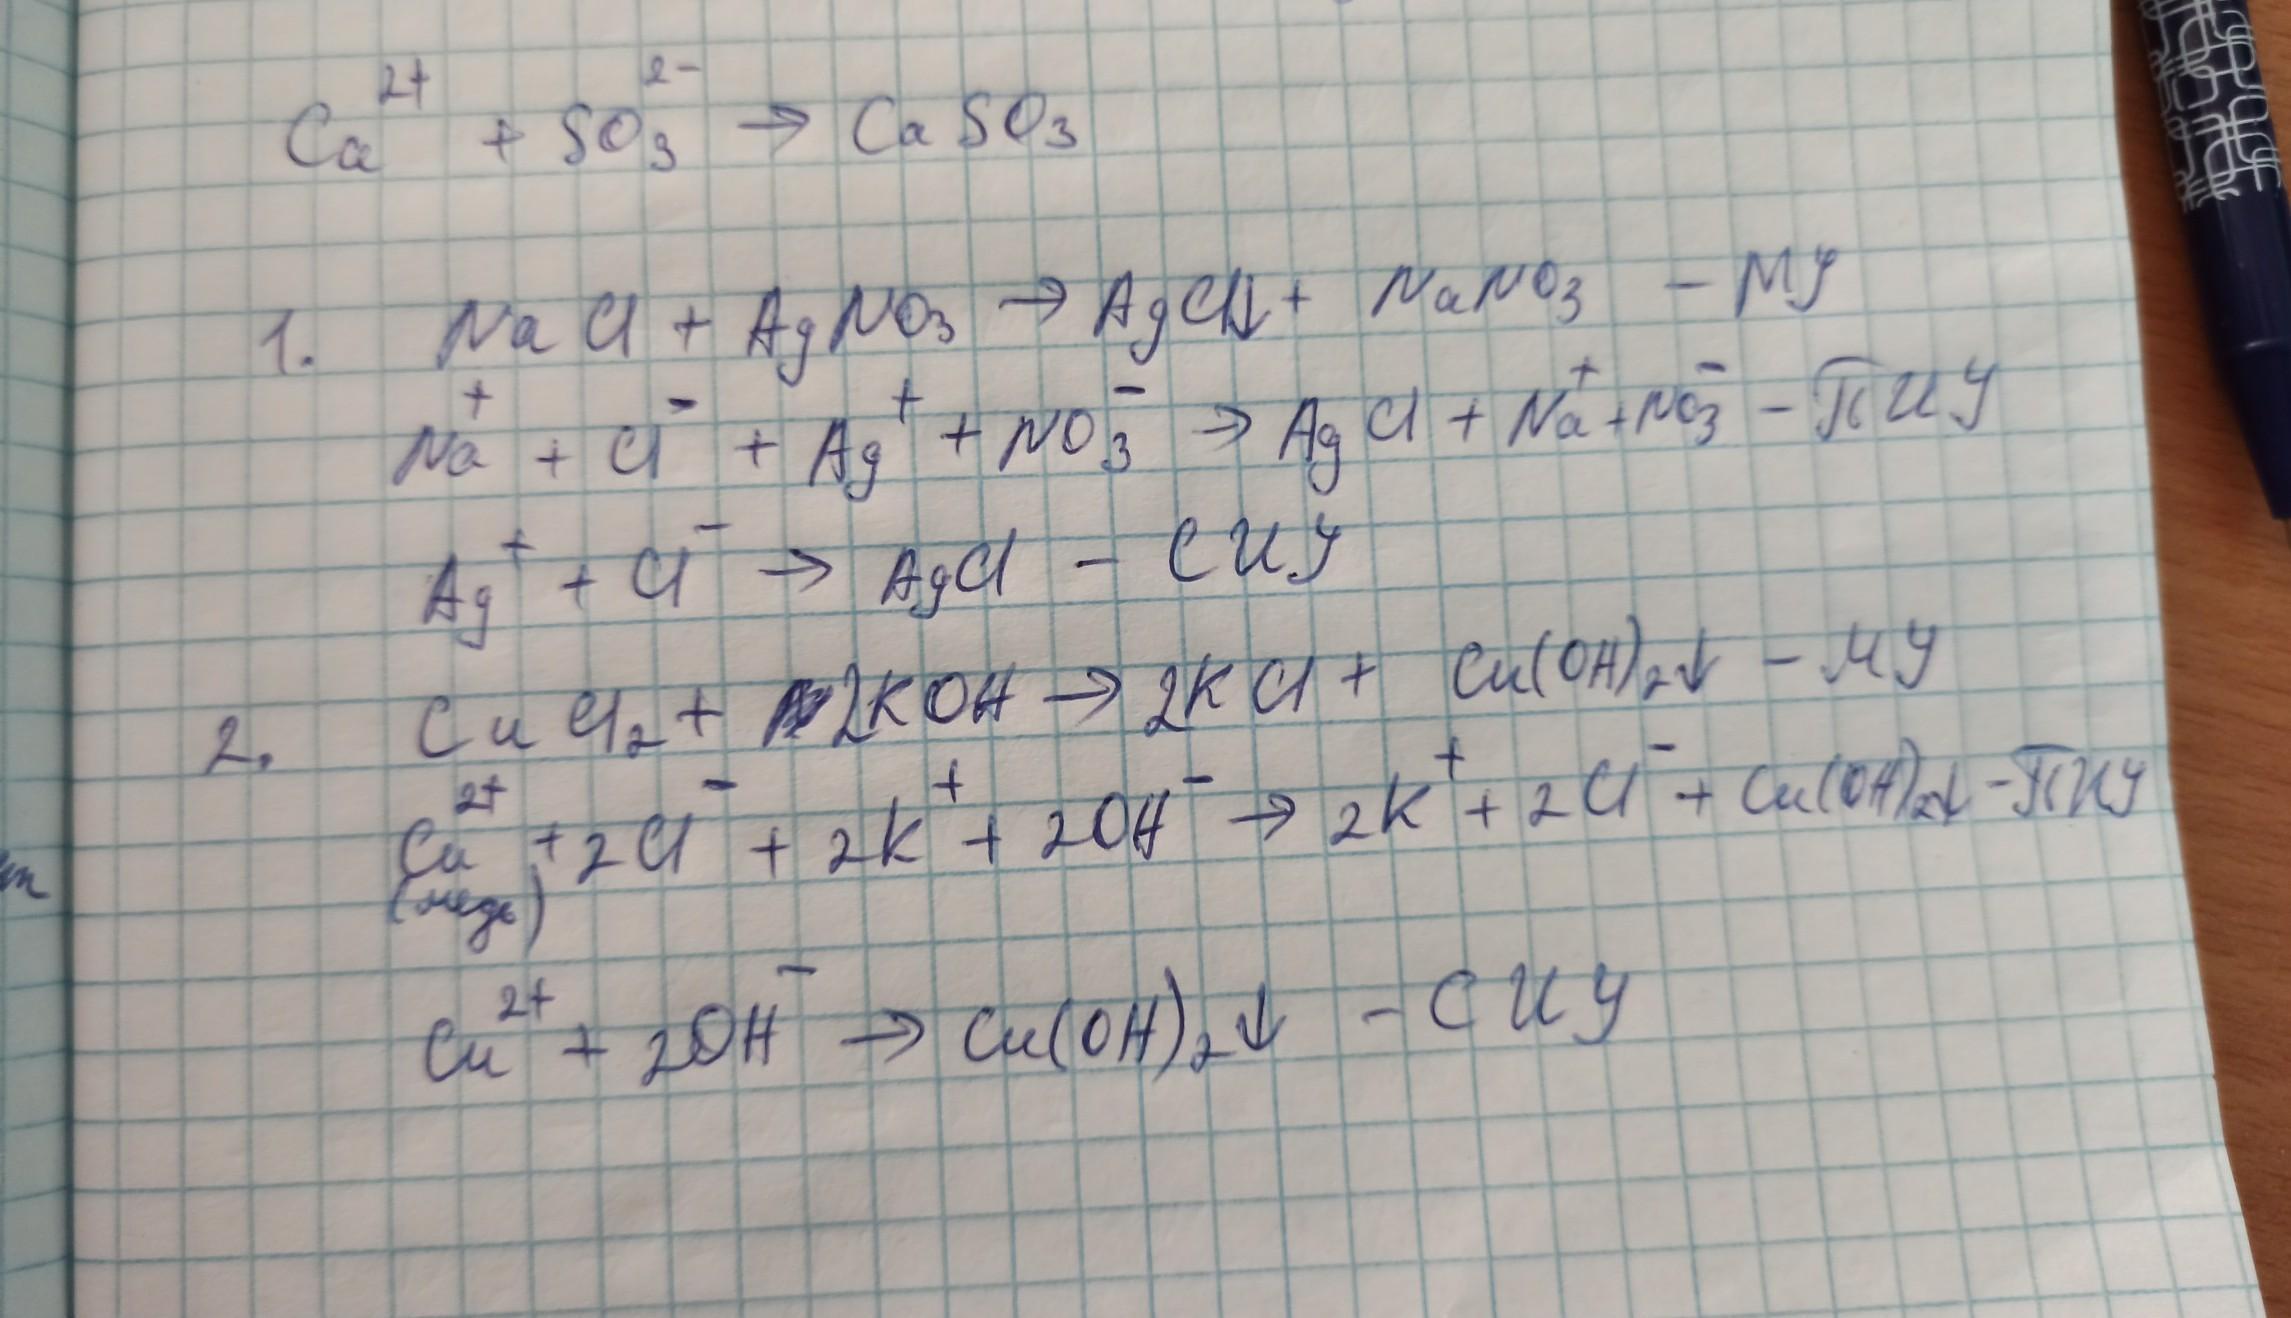 Ca²⁺ + SO₃²⁻ → CaSO₃
1. NaCl + AgNO₃ → AgCl↓ + NaNO₃ – МУ
Na⁺ + Cl⁻ + Ag⁺ + NO₃⁻ → AgCl + Na⁺ + NO₃⁻ – ПИУ
Ag⁺ + Cl⁻ → AgCl – СИУ
2. CuCl₂ + 2KOH → 2KCl + Cu(OH)₂↓ – МУ
Cu²⁺ + 2Cl⁻ + 2K⁺ + 2OH⁻ → 2K⁺ + 2Cl⁻ + Cu(OH)₂↓ – ПИУ
(медь)
Cu²⁺ + 2OH⁻ → Cu(OH)₂↓ – СИУ